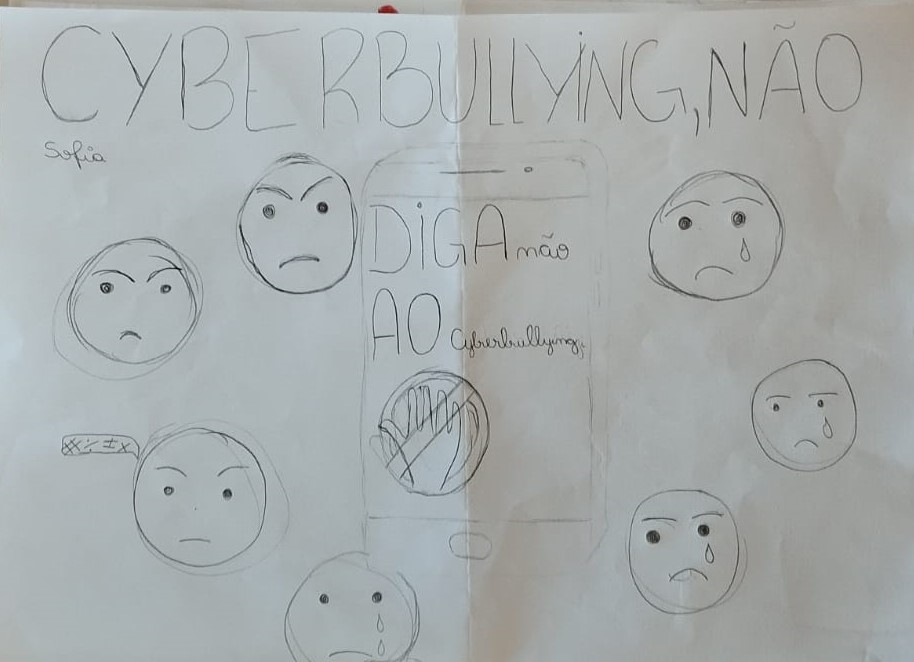 CYBERBULLYING, NÃO
Sofia
DIGA não
AO cyberbullying,